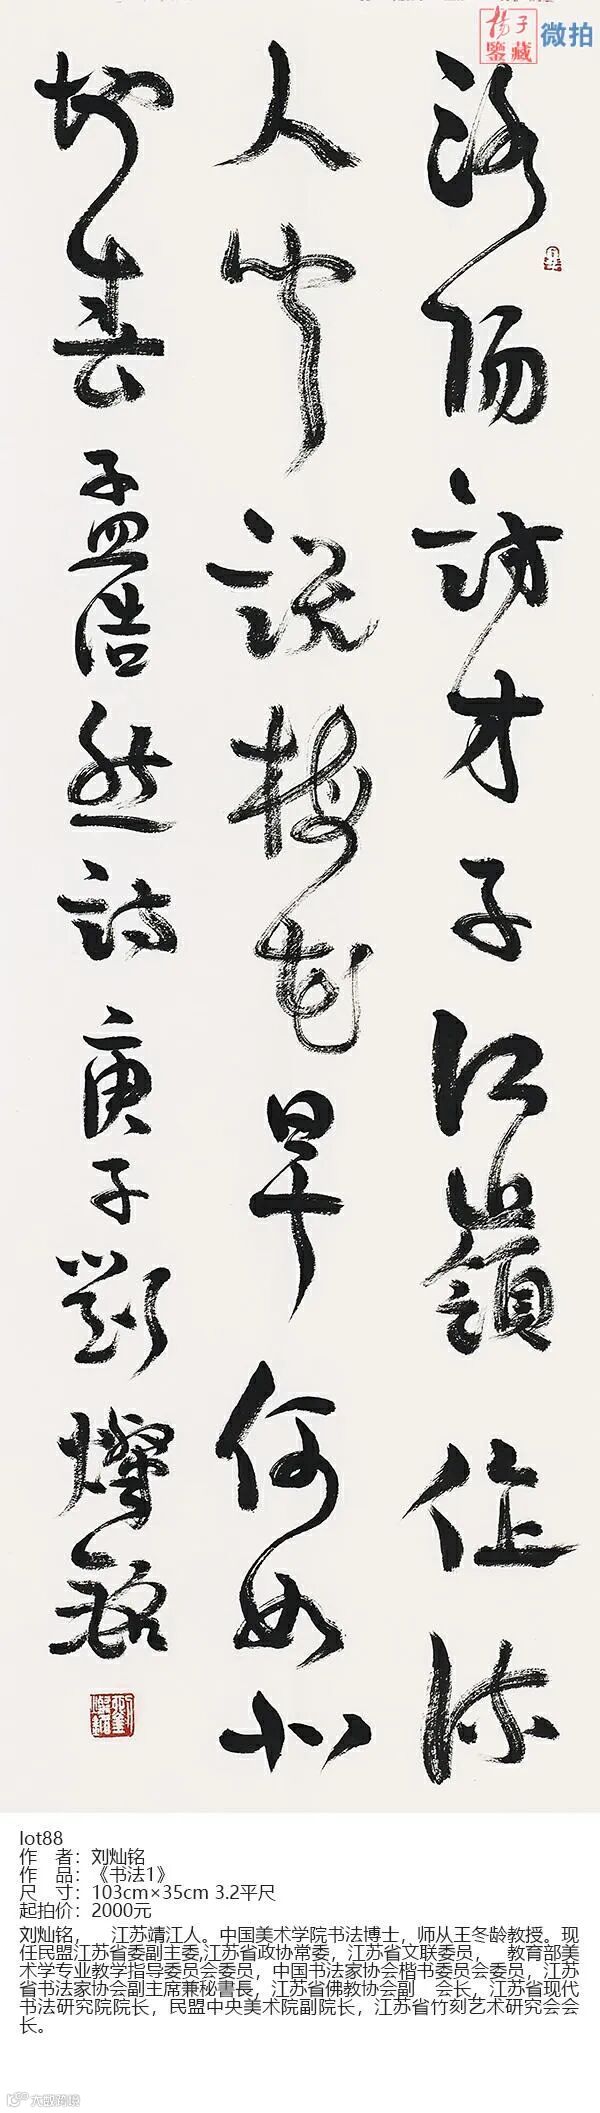 楊子
鑒藏
微拍
洛陽訪才子江嶺作流
人聞說梅花早何如北
地春 孟浩然詩 庚子劉燦銘
lot88
作　者：刘灿铭
作　品：《书法1》
尺　寸：103cm×35cm 3.2平尺
起拍价：2000元
刘灿铭，　江苏靖江人。中国美术学院书法博士，师从王冬龄教授。现
任民盟江苏省委副主委,江苏省政协常委，江苏省文联委员，　教育部美
术学专业教学指导委员会委员，中国书法家协会楷书委员会委员，江苏
省书法家协会副主席兼秘書長，江苏省佛教协会副　会长，江苏省现代
书法研究院院长，民盟中央美术院副院长，江苏省竹刻艺术研究会会
长。
大数跨境